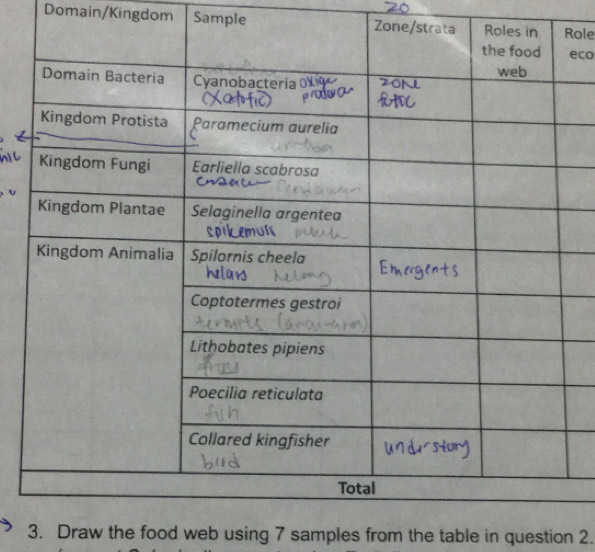 ZO
Domain/Kingdom Sample Zone/strata Roles in the food web Role eco
Domain Bacteria Cyanobacteria ZONE
Kingdom Protista Paramecium aurelia
Kingdom Fungi Earliella scabrosa
Kingdom Plantae Selaginella argentea
spikemoss
Kingdom Animalia Spilornis cheela Emergents
helang
Coptotermes gestroi
Lithobates pipiens
frog
Poecilia reticulata
fish
Collared kingfisher understory
bird
Total
3. Draw the food web using 7 samples from the table in question 2.